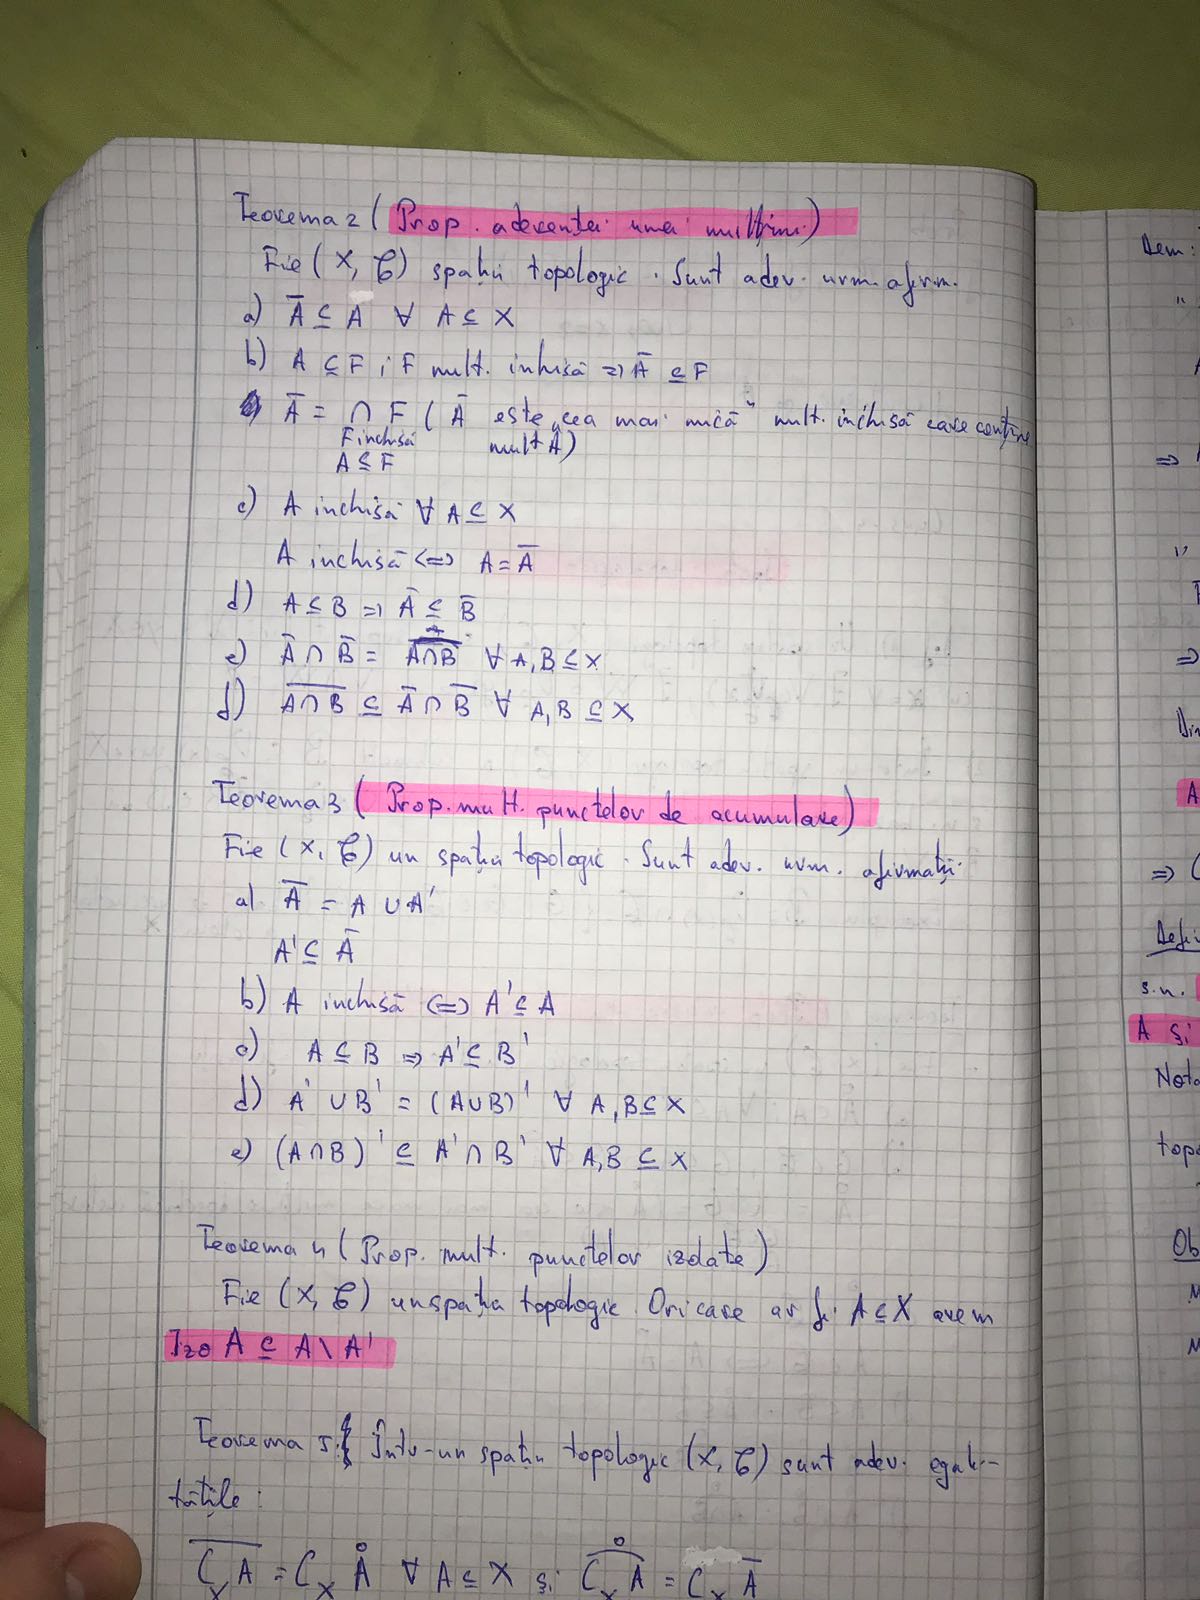 Teorema 2 ( Prop. aderentei unei multimi)
Fie (X, G) spațiu topologic. Sunt adev. urm. afirm.
a) A̅ ⊆ A ∀ A ⊆ X
b) A ⊆ F ; F mult. inhisă => A̅ ⊆ F
A̅ = ∩ F ( A̅ este „cea mai mică" mult. inchisă care conține
F inchisă mult A)
A ⊆ F
c) A inchisă ∀ A ⊆ X
A inchisă <=> A = A̅
d) A ⊆ B => A̅ ⊆ B̅
e) A̅ ∩ B̅ = \overline{A∩B} ∀ A, B ⊆ X
f) \overline{A∩B} ⊆ A̅ ∩ B̅ ∀ A, B ⊆ X
Teorema 3 ( Prop. mult. punctelor de acumulare)
Fie (X, G) un spațiu topologic. Sunt adev. urm. afirmații.
a) A̅ = A ∪ A'
A' ⊆ A̅
b) A inchisă <=> A' ⊆ A
c) A ⊆ B => A' ⊆ B'
d) A' ∪ B' = (A∪B)' ∀ A, B ⊆ X
e) (A∩B)' ⊆ A' ∩ B' ∀ A, B ⊆ X
Teorema 4 ( Prop. mult. punctelor izolate)
Fie (X, G) un spațiu topologic. Oricare ar fi A ⊆ X avem
Izo A ⊆ A \ A'
Teorema 5: Într-un spațiu topologic (X, G) sunt adev. egali-
tățile :
\overline{C_X A} = C_X Å ∀ A ⊆ X și \overset{o}{C_X A} = C_X A̅
Dem:
=>
=>
A
=> (
Defi
s.n.
A și
Nota
topo
Ob